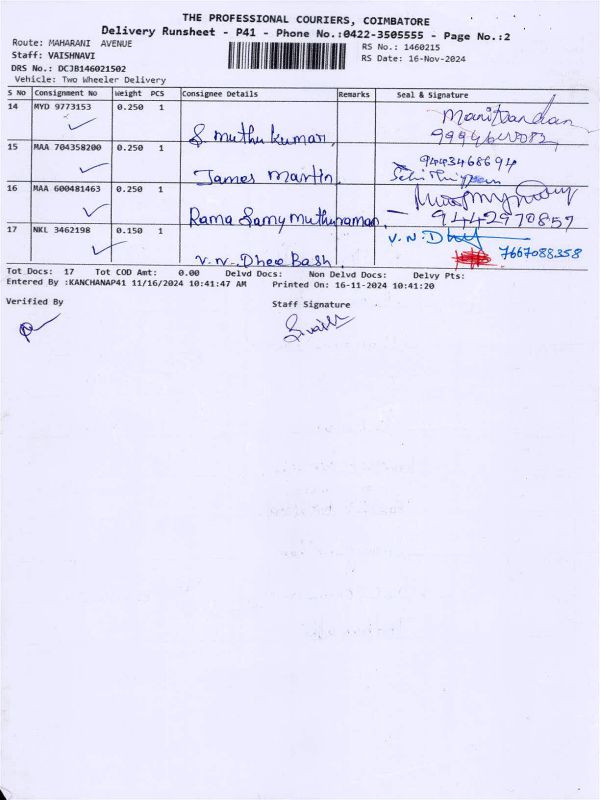 THE PROFESSIONAL COURIERS, COIMBATORE
Delivery Runsheet - P41 - Phone No.:0422-3505555 - Page No.:2
Route: MAHARANI AVENUE
RS No.: 1460215
Staff: VAISHNAVI
RS Date: 16-Nov-2024
DRS No.: DCJB146021502
Vehicle: Two Wheeler Delivery
S No Consignment No Weight PCS Consignee Details Remarks Seal & Signature
14 MYD 9773153 0.250 1
S muthu kumar
15 MAA 704358200 0.250 1 9443468694
James Martin
16 MAA 600481463 0.250 1
Rama Samy muthuraman 9442970857
17 NKL 3462198 0.150 1 V.N.
V.N. Dhee Bash 7667088358
Tot Docs: 17 Tot COD Amt: 0.00 Delvd Docs: Non Delvd Docs: Delvy Pts:
Entered By :KANCHANAP41 11/16/2024 10:41:47 AM Printed On: 16-11-2024 10:41:20
Verified By Staff Signature